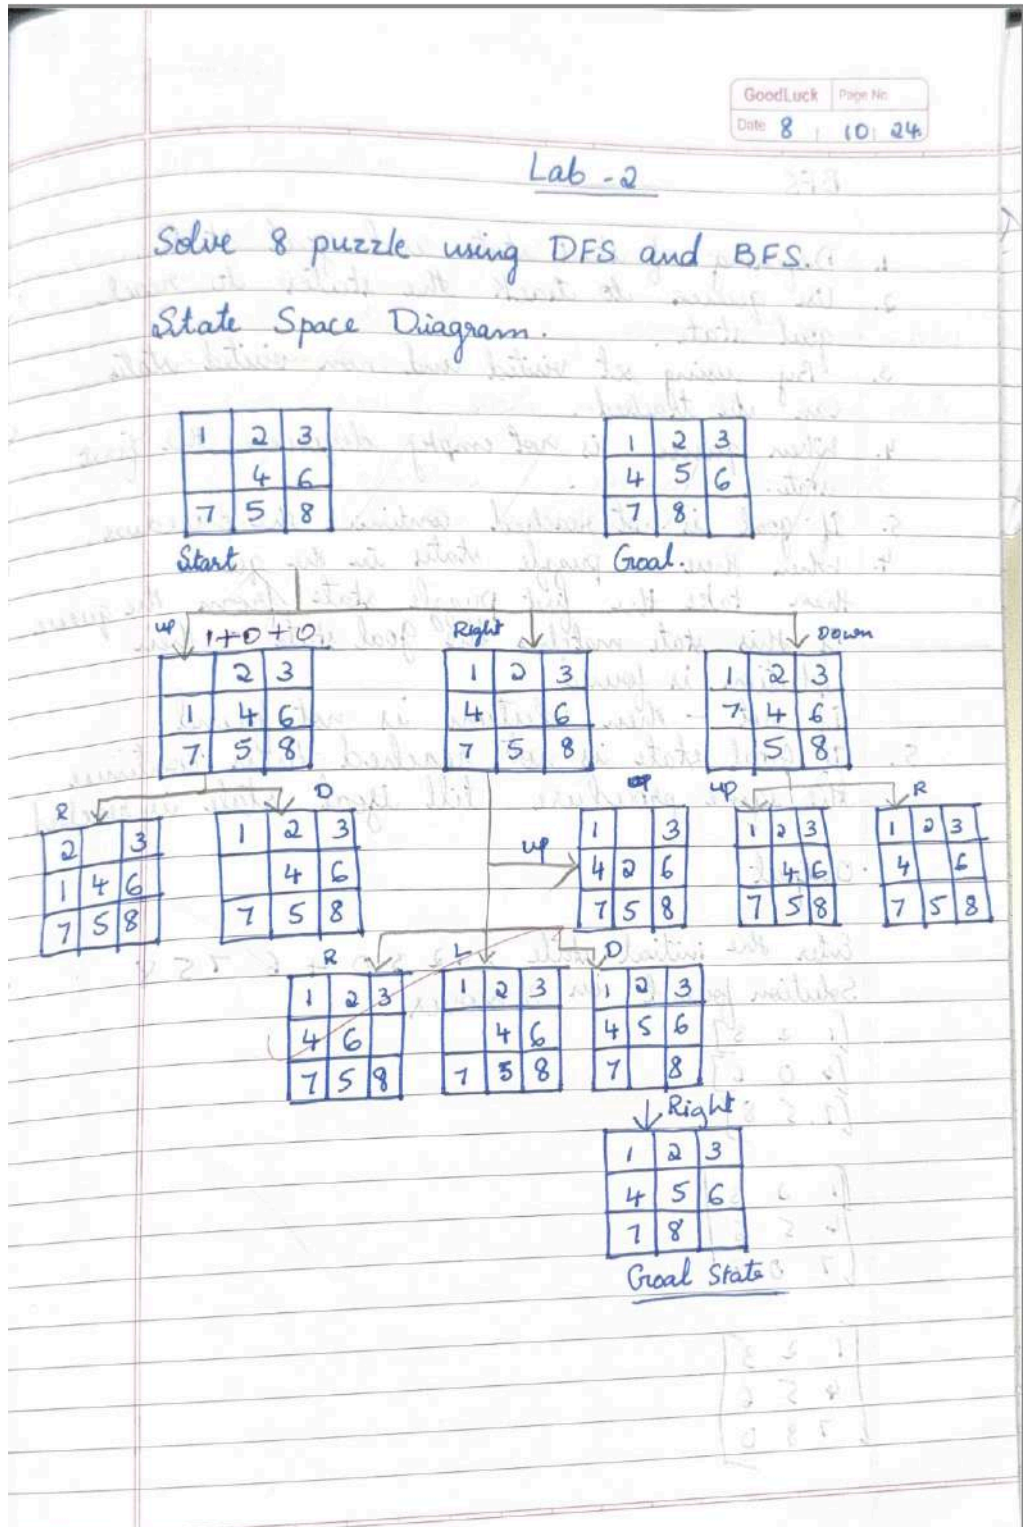 GoodLuck Page No
Date 8 10 24
Lab - 2
Solve 8 puzzle using DFS and BFS.
State Space Diagram.
1 2 3
4 6
7 5 8
Start
1 2 3
4 5 6
7 8
Goal.
up 1+0+0
2 3
1 4 6
7 5 8
Right
1 2 3
4 6
7 5 8
Down
1 2 3
7 4 6
5 8
R
2 3
1 4 6
7 5 8
D
1 2 3
4 6
7 5 8
up
1 3
4 2 6
7 5 8
up
1 2 3
4 6
7 5 8
R
1 2 3
4 6
7 5 8
R
1 2 3
4 6
7 5 8
L
1 2 3
4 6
7 5 8
D
1 2 3
4 5 6
7 8
Right
1 2 3
4 5 6
7 8
Goal State